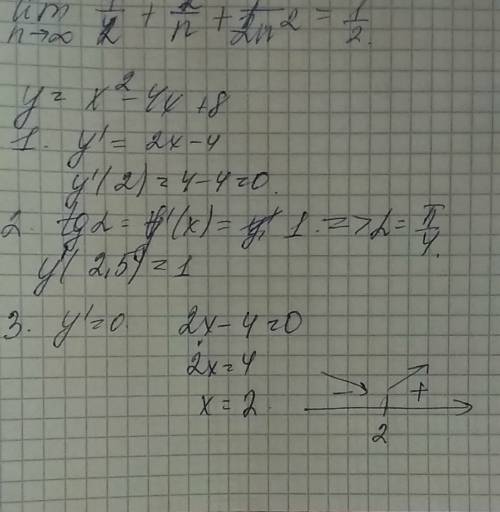 lim 1/2 + 2/n + 1/2n² = 1/2.
n→∞
y = x² - 4x + 8
1. y' = 2x - 4
y'(2) = 4 - 4 = 0.
2. tg α = y'(x) = 1. => α = π/4.
y'(2,5) = 1
3. y' = 0. 2x - 4 = 0
2x = 4
x = 2.
- +
2